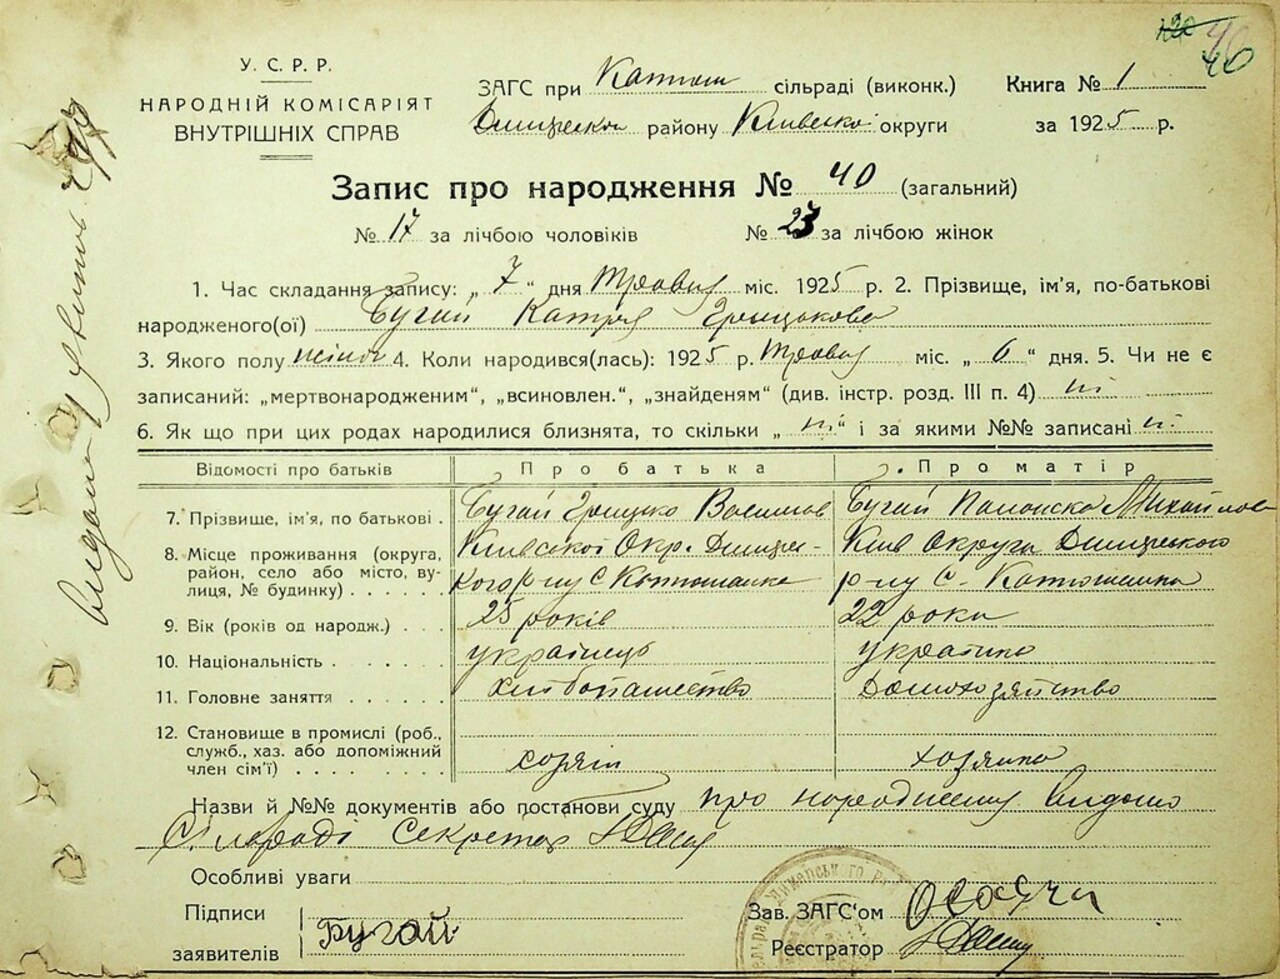 40
У. С. Р. Р.
НАРОДНІЙ КОМІСАРІЯТ
ВНУТРІШНІХ СПРАВ
ЗАГС при Катюж сільраді (виконк.)
Димерськ району Київської округи
Книга № 1
за 1925 р.
Запис про народження № 40 (загальний)
№ 17 за лічбою чоловіків № 23 за лічбою жінок
1. Час складання запису: „ 7 “ дня Травня міс. 1925 р. 2. Прізвище, ім'я, по-батькові
народженого(ої) Бугай Катря Грицькова
3. Якого полу жіноч 4. Коли народився(лась): 1925 р. Травня міс. „ 6 “ дня. 5. Чи не є
записаний: „мертвонародженим“, „всиновлен.“, „знайденям“ (див. інстр. розд. III п. 4) ні
6. Як що при цих родах народилися близнята, то скільки „ ні “ і за якими №№ записані ні
Відомості про батьків Про батька Про матір
7. Прізвище, ім'я, по батькові . Бугай Грицько Василов Бугай Михайлов
8. Місце проживання (округа, район, село або місто, вулиця, № будинку) . . . . . .
Київської Окр. Димерського р-ну С Катюжанка
Київ Округа Димерського р-ну С. Катюжанка
9. Вік (років од народж.) . . . 25 років 22 роки
10. Національність . . . . . українець українка
11. Головне заняття . . . . . . хлібопашество домохозяйство
12. Становище в промислі (роб., служб., хаз. або допоміжний член сім'ї) . . . . . . . хозяїн хозяйка
Назви й №№ документів або постанови суду про народження видано
Сільраді Секретар
Особливі уваги
Підписи
заявителів
Бугай
Зав. ЗАГС'ом
Реєстратор
Димарського
видано